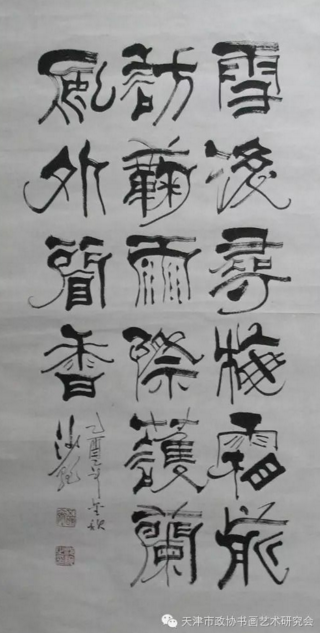 雪後尋梅霜前
訪鞠雨際護蘭
風外香
乙酉年
天津市政协书画艺术研究会